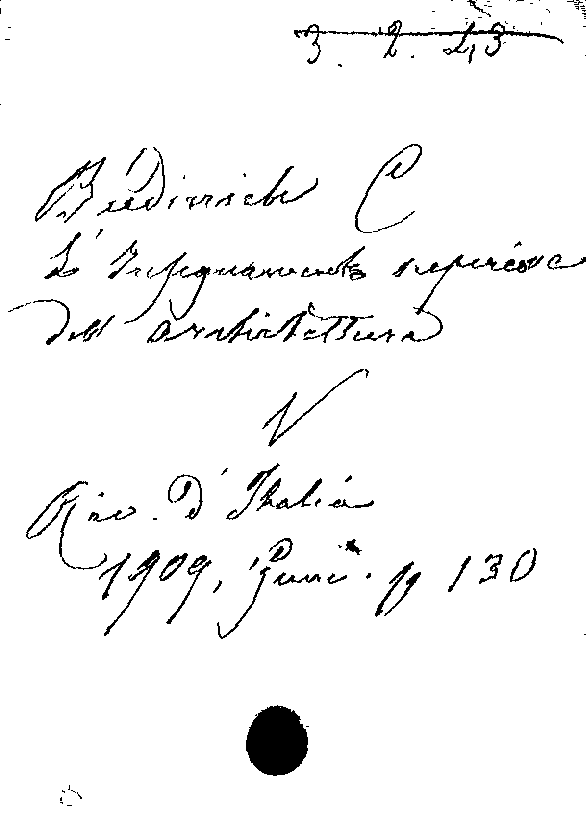 3. 2. 43
C
L'Insegnamento superiore
dell architettura
V
Riv. d'Italia
1909, p 130